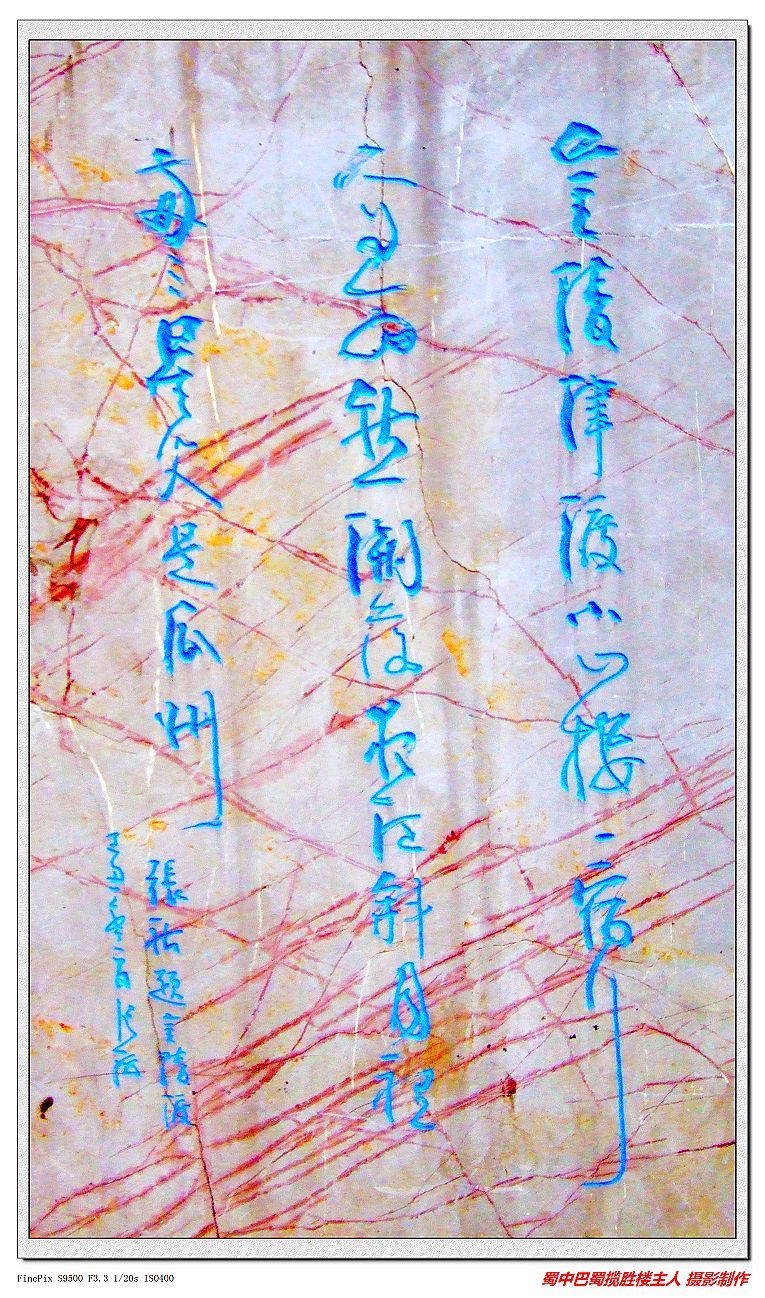 金陵津渡小山樓一宿行
人自可愁潮落夜江斜月裡
兩三星火是瓜州
張祜題金陵渡
FinePix S9500 F3.3 1/20s ISO400
蜀中巴蜀揽胜楼主人 摄影制作